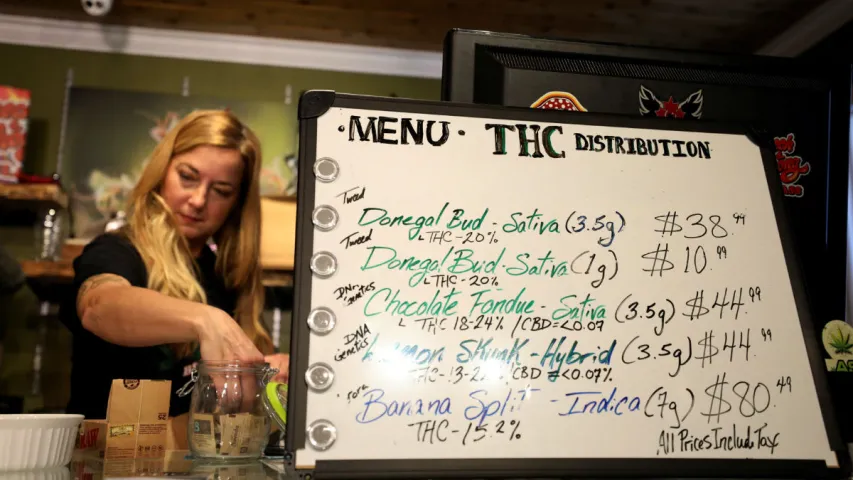 ·MENU· THC DISTRIBUTION
Tweed
Donegal Bud - Sativa (3.5g) $38.99
THC-20%
Tweed
Donegal Bud - Sativa (1g) $10.99
THC-20%
DNA genetics
Chocolate Fondue - Sativa (3.5g) $44.99
THC 18-24% / CBD=<0.07
DNA Genetics
Lemon Skunk - Hybrid (3.5g) $44.99
THC-13- / CBD=<0.07%
Banana Split - Indica (7g) $80.49
THC-15.2%
All Prices Include Tax
RAW